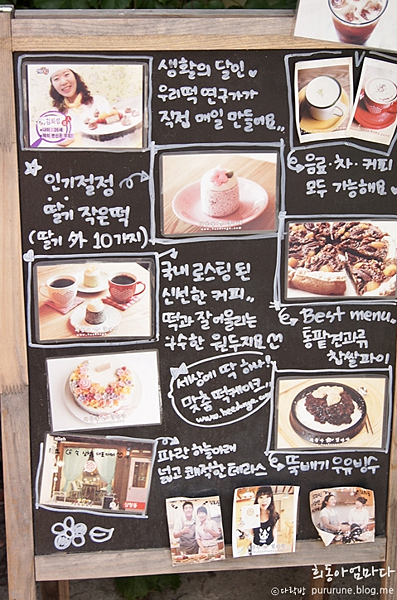 생활의 달인
우리떡 연구가가
직접 매일 만들어요..
음료·차·커피
모두 가능해요
인기절정
딸기 작은떡
(딸기 外 10가지)
국내 로스팅 된
신선한 커피..
떡과 잘 어울리는
구수한 원두지요
Best menu..
통팥견과류
찹쌀파이
세상에 딱 하나!
맞춤 떡케이크..
파란 하늘아래
넓고 쾌적한 테라스
뚝배기 우유빙수
희동아엄마다
다락방 pururune.blog.me